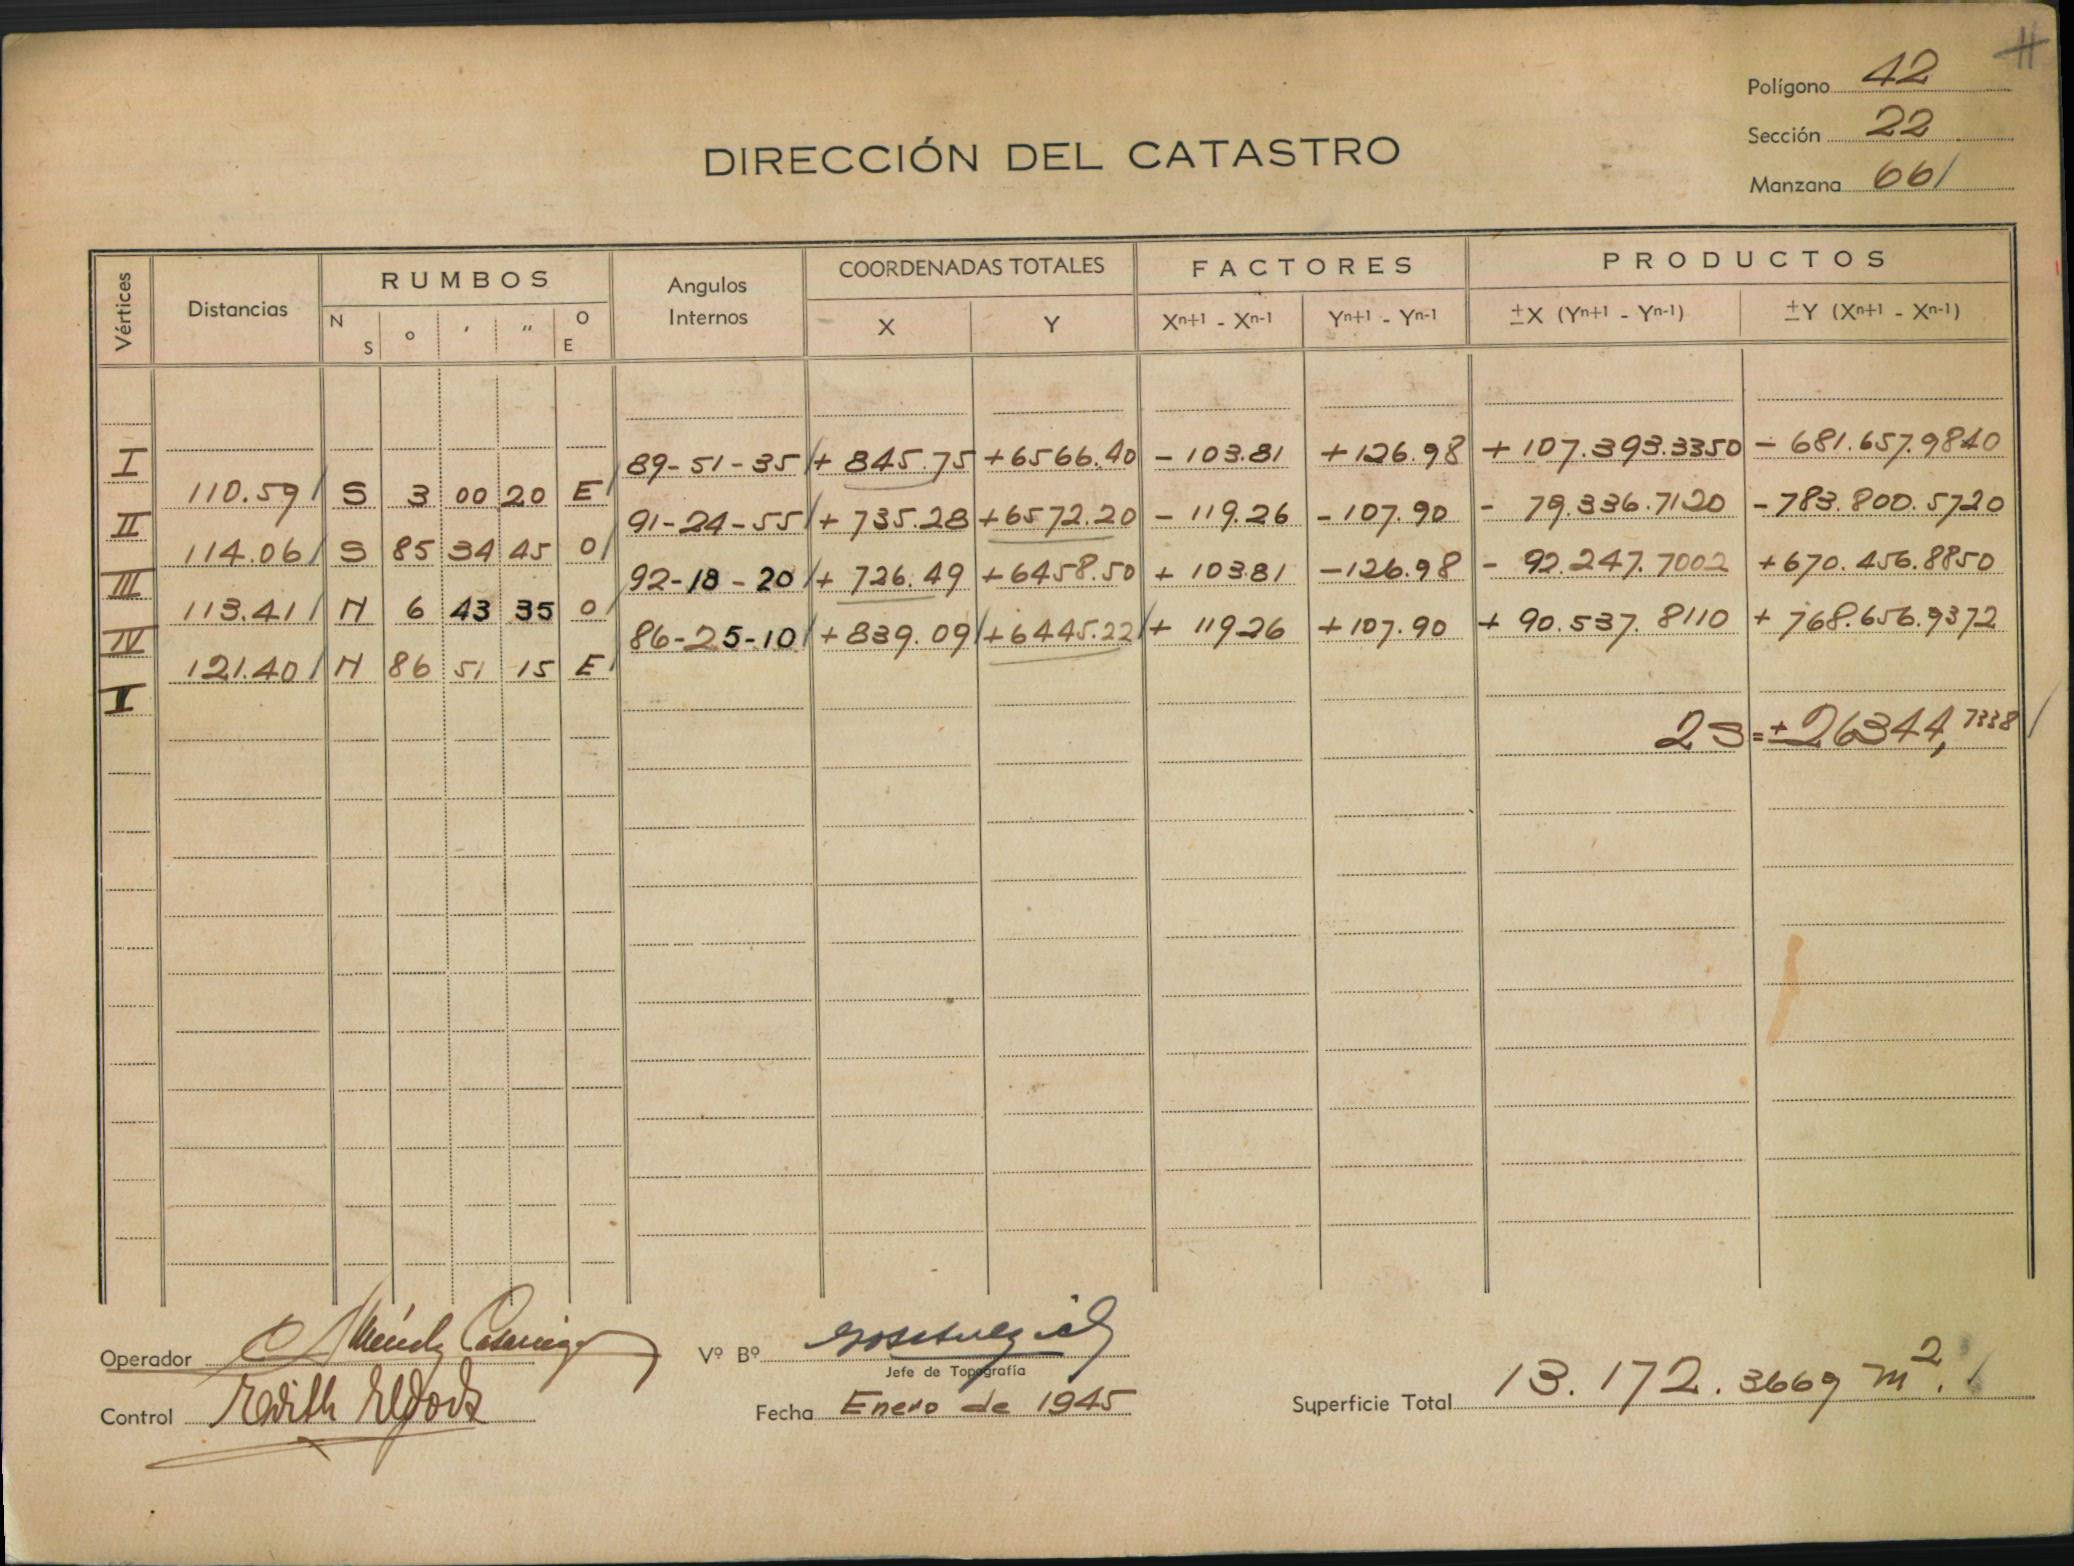 Polígono 42
Sección 22
Manzana 661
DIRECCIÓN DEL CATASTRO
Vértices Distancias RUMBOS Angulos Internos COORDENADAS TOTALES FACTORES PRODUCTOS
N S o ' " O E X Y Xn+1 - Xn-1 Yn+1 - Yn-1 ±X (Yn+1 - Yn-1) ±Y (Xn+1 - Xn-1)
I 89-51-35 + 845.75 +6566.40 - 103.81 +126.98 + 107.393.3350 - 681.657.9840
110.59 S 3 00 20 E
II 91-24-55 + 735.28 +6572.20 - 119.26 -107.90 - 79.336.7120 -783.800.5720
114.06 S 85 34 45 O
III 92-18-20 + 726.49 +6458.50 + 103.81 -126.98 - 92.247.7002 +670.456.8850
113.41 N 6 43 35 O
IV 86-25-10 +839.09 +6445.22 + 119.26 +107.90 + 90.537.8110 + 768.656.9372
121.40 N 86 51 15 E
I
2S = ± 26344,7338
Operador
Vº Bº
Jefe de Topografía
Control
Fecha Enero de 1945
Superficie Total 13.172.3669 m2.